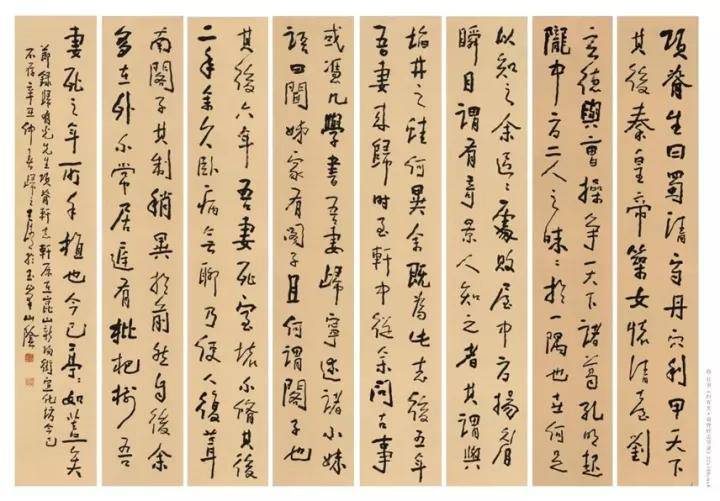 項脊生曰蜀清守丹穴利甲天下
其後秦皇帝築女懷清臺劉
玄德與曹操爭天下諸葛孔明起
隴中方二人之昧〻於一隅也世何足
以知之余區〻處敗屋中方揚眉
瞬目謂有奇景人知之者其謂與
埳井之蛙何異余既為此志後五年
吾妻來歸時至軒中從余問古事
或憑几學書吾妻歸寧述諸小妹
語曰聞姊家有閣子且何謂閣子也
其後六年吾妻死室壞不修其後
二年余久臥病無聊乃使人復葺
南閣子其制稍異於前然自後余
多在外不常居庭有枇杷樹吾
妻死之年所手植也今已亭〻如蓋矣
節錄歸有光先生項脊軒志軒原在崑山宣化坊今已
不存辛丑仲春於玉峰山陰